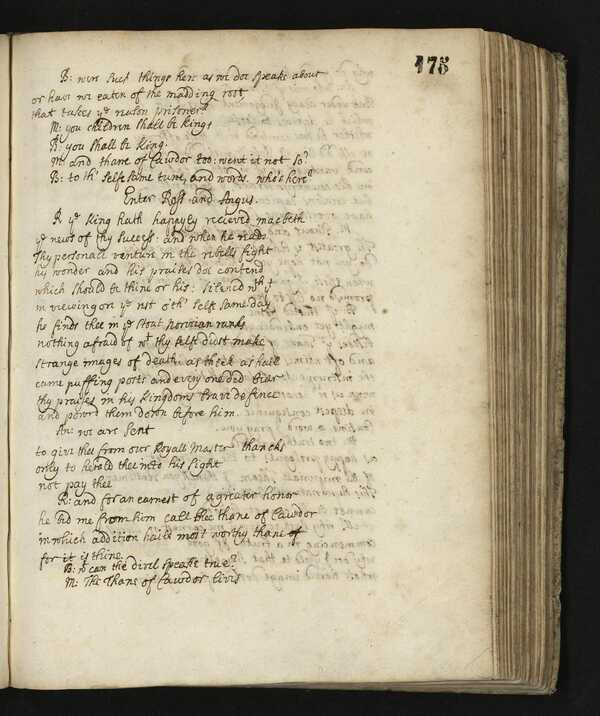 175
B: were such things here as we doe speake about
or have we eaten of the madding root
that takes ye reason prisoner?
M: you children shall be kings
B: you shall be King.
M: and thane of Cawdor too: went it not so?
B: to th' selfe same tune, and words. who's here?
Enter Ross and Angus.
R ye King hath happyly recieved macbeth
ye news of thy success: and when he reads
Thy personall venture in the rebells fight
his wonder and his praises doe contend
which should be thine or his: silenc'd wth t
in viewing on ye rest o'th' selfe same day
he finds thee in ye stout norweian ranks
nothing afraid of wt thy selfe didst make
strange images of death. as thick as hail
came puffing posts and every one did bear
thy praises in his kingdoms brave defence
and powrd them down before him.
An: we are sent
to give thee from our Royall Master thancks
only to herold thee into his sight
not pay thee
R: and for an earnest of a greater honor
he bid me from him call thee thane of Cawdor
in which addition haile most worthy thane
for it is thine.
B: wt can the divel speake true?
M: The Thane of Cawdor lives